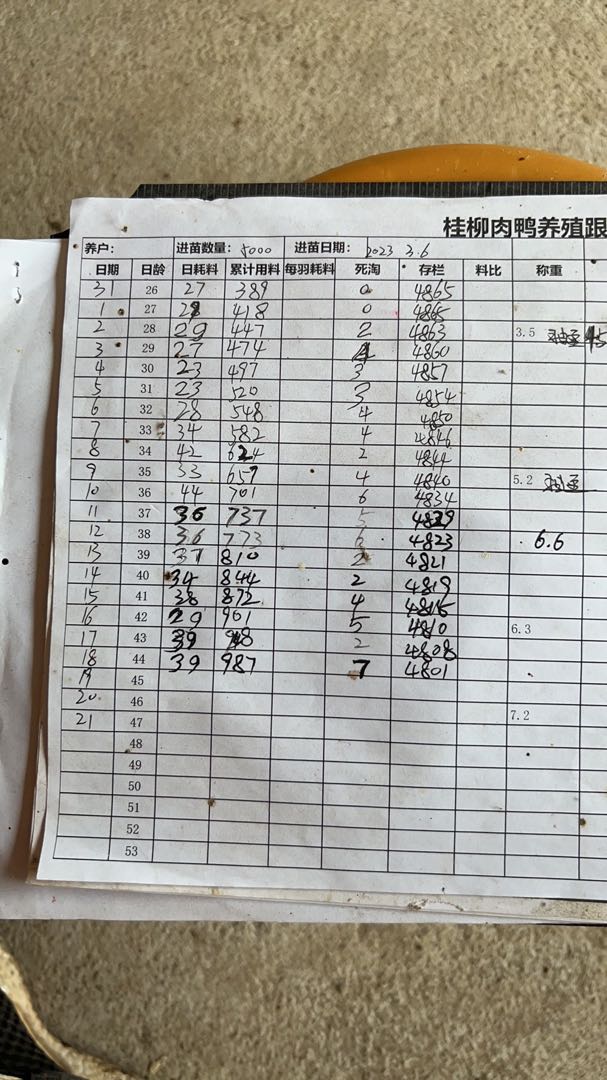 桂柳肉鸭养殖跟
养户: 进苗数量: 5000 进苗日期: 2023 3.6
日期 日龄 日耗料 累计用料 每羽耗料 死淘 存栏 料比 称重
31 26 27 389 0 4865
1 27 29 418 0 4865
2 28 29 447 2 4863 3.5
3 29 27 474 4860
4 30 23 497 3 4857
5 31 23 520 3 4854
6 32 28 548 4 4850
7 33 34 582 4 4846
8 34 42 624 2 4844
9 35 33 657 4 4840 5.2
10 36 44 701 6 4834
11 37 36 737 5 4829
12 38 36 773 6 4823 6.6
13 39 37 810 2 4821
14 40 34 844 2 4819
15 41 38 872 4 4815
16 42 29 901 5 4810 6.3
17 43 39 948 2 4808
18 44 39 987 7 4801
19 45
20 46
21 47 7.2
48
49
50
51
52
53